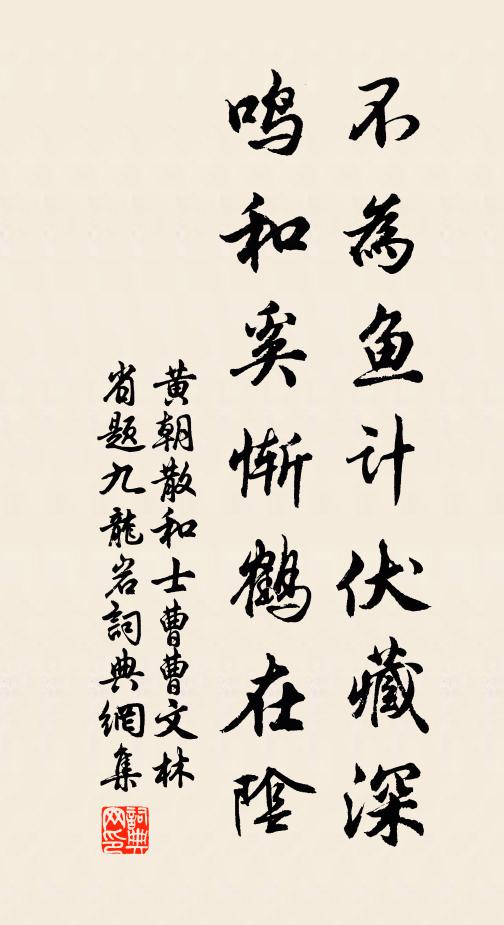 不為鱼计伏藏深
鸣和奚惭鶴在陰
黄朝散和士曹曹文林
省题九龍岩詞典網集
詞典网印